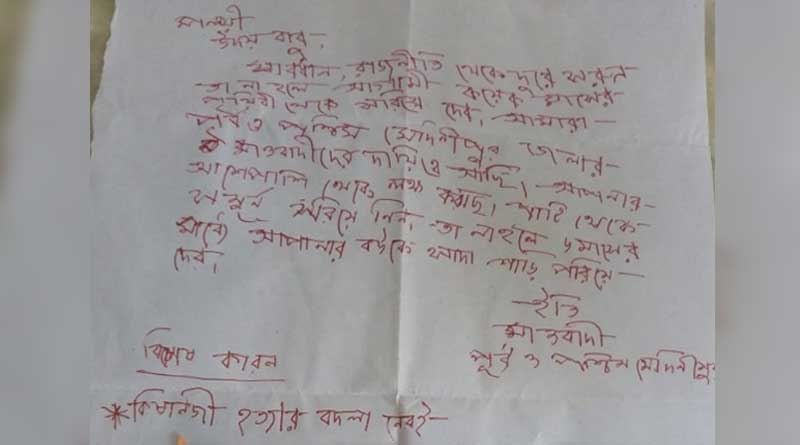 মাননীয়
উদয় বাবু,
সাবধান, রাজনীতি থেকে দূরে সরুন
তা না হলে আগামী কয়েক মাসের
পৃথিবী থেকে সরিয়ে দেব, আমারা—
পূর্ব ও পশ্চিম মেদিনীপুর জেলার—
মাওবাদীদের দায়িত্ব আছি। আপনার—
আশেপাশি থেকে লক্ষ্য করছি। পার্টি থেকে
সম্পূর্ন সরিয়ে নিন, তা নাহলে ৬ মাসের
মধ্যে আপানার বউকে সাদা শাড়ি পরিয়ে—
দেব।
—ইতি
মাওবাদী
পূর্ব ও পশ্চিম মেদিনীপুর
বিশেষ কারন
*কিষানজী হত্যার বদলা নেবই—